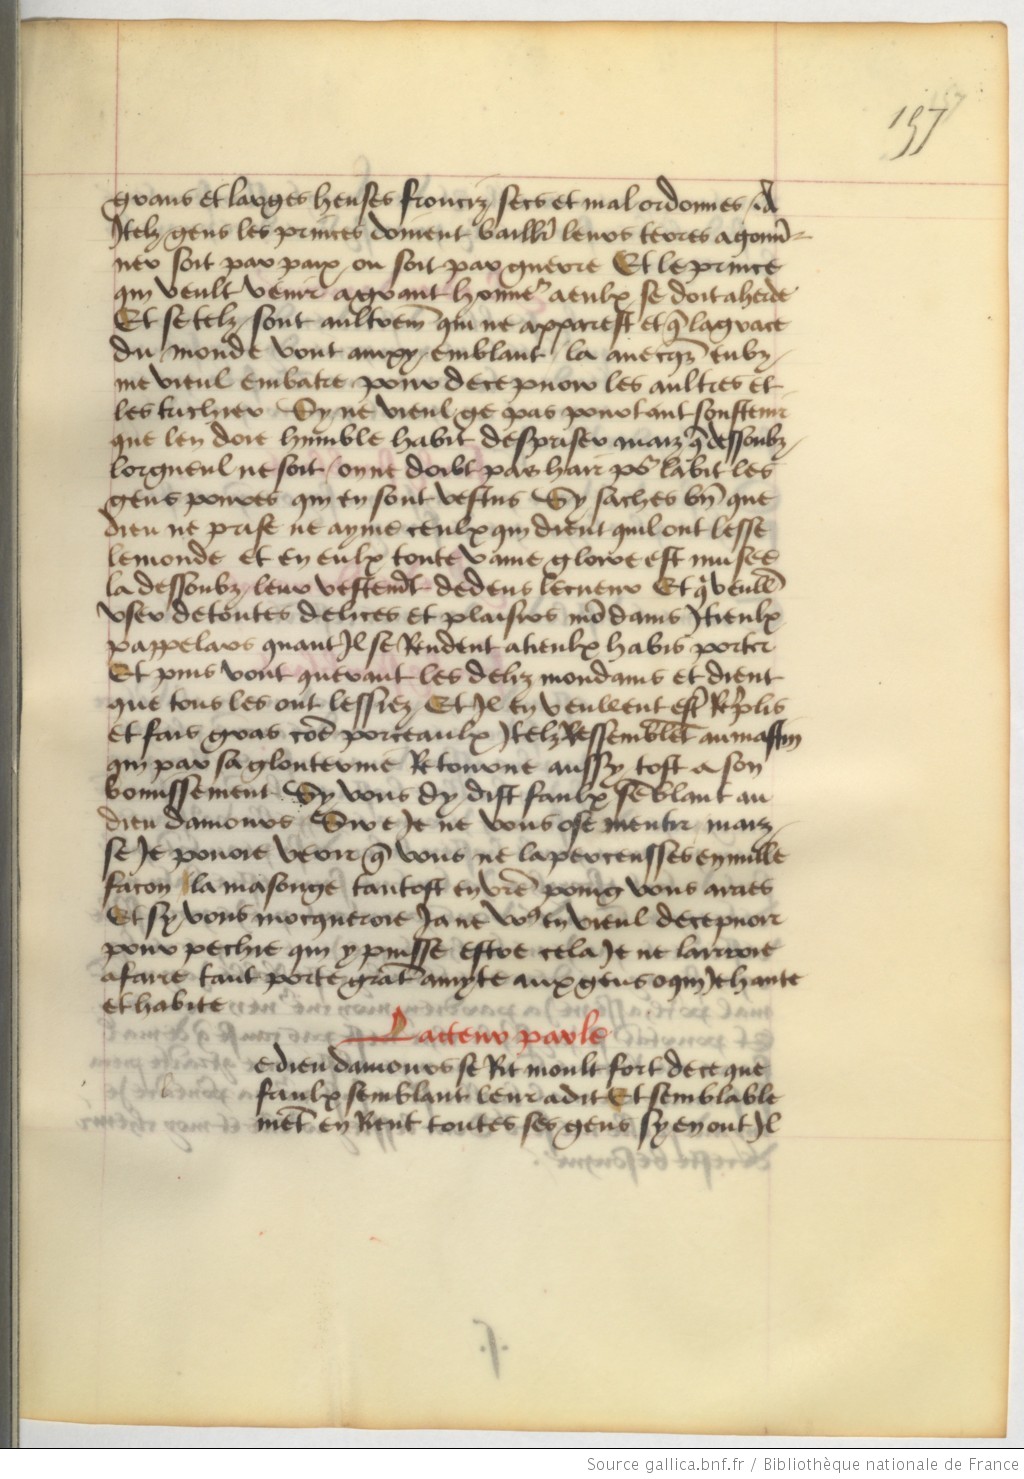 157
grans et larges heuses fronciz secs et mal ordonnes A
Itelz gens les princes doiuent baillr leurs terres a gouu
ner soit par paix ou soit par guerre Et le prince
qui veult venir a grant honne a ceulx se doit aherdre
Et se telz sont aultrem qui ne apparest et q la grace
du monde vont ainxy emblant la auecqz eulz
me vieul embatre pour decepuoir les aultres et
les trichier Sy ne vieul ge pas pourtant soustenir
que len doie humble habit despriser maiz q dessoubz
lorgueul ne soit on ne doibt pas hair po labit les
gens poures qui en sont vestus Sy saches bn que
dieu ne prise ne ayme ceulx qui dient quil ont lesse
le monde et en eulx toute vaine gloire est musee
la dessoubz leur vestemt dedens le cueur Et q veullt
vser de toutes delices et plaisirs modains Itieulx
pappelars quant Il se Rendent a tieulx habis porter
Et puis vont querant les deliz mondains et dient
que tous les ont lessiez Et Il en veullent est Replis
et fais gras coe porceaulx Itelz Ressemblet au mastin
qui par sa glouternie Retourne aussy tost a son
vomissement Sy vous dy dist faulx seblant au
dieu damours Sire Je ne vous ose mentir maiz
se Je pouoie veoir q vous ne laperceusses en nulle
facon la masonge tantost en vre poing vous araes
Et sy vous mocqueroie Ja ne vo en vieul decepuoir
pour pechie qui y puisse estre cela Je ne lairroie
a faire tant porte grat amyte aux gens o qui Je hante
et habite
Lacteur parle
e dieu damours se Rit moult fort de ce que
faulx semblant leur a dit Et semblable
met en Rient toutes ses gens sy en ont Il
Source gallica.bnf.fr / Bibliothèque nationale de France